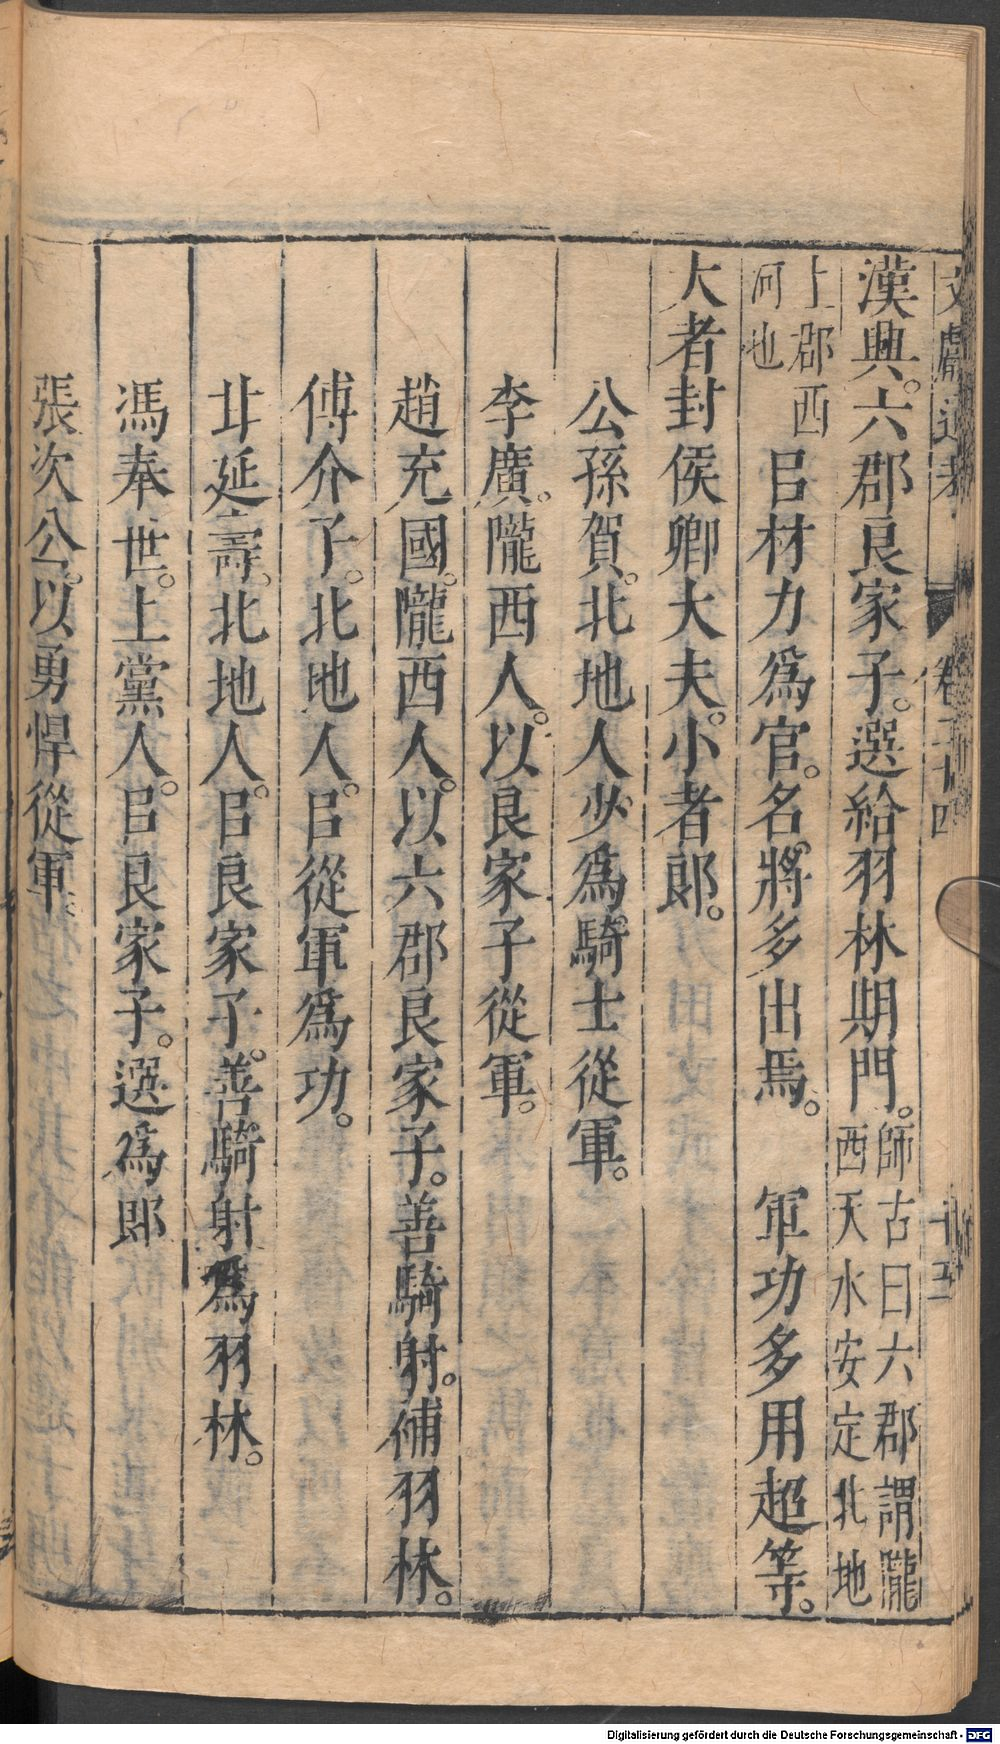 文獻通考 卷三十四 十五
漢興。六郡良家子。選給羽林期門。師古曰六郡謂隴西天水安定北地
上郡西河也㠯材力為官。名將多出焉。 軍功多用超等。
大者封侯卿大夫。小者郎。
公孫賀。北地人。少為騎士從軍。
李廣。隴西人。以良家子從軍。
趙充國。隴西人。以六郡良家子。善騎射。補羽林。
傅介子。北地人。㠯從軍為功。
甘延壽。北地人。㠯良家子。善騎射為羽林。
馮奉世。上黨人。㠯良家子。選為郎
張次公。以勇悍從軍。
Digitalisierung gefördert durch die Deutsche Forschungsgemeinschaft - DFG